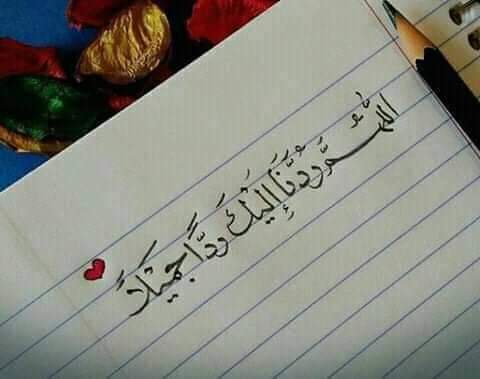 اللهُمَّ رُدَّنَا إِلَيْكَ رَدًّا جَمِيْلًا